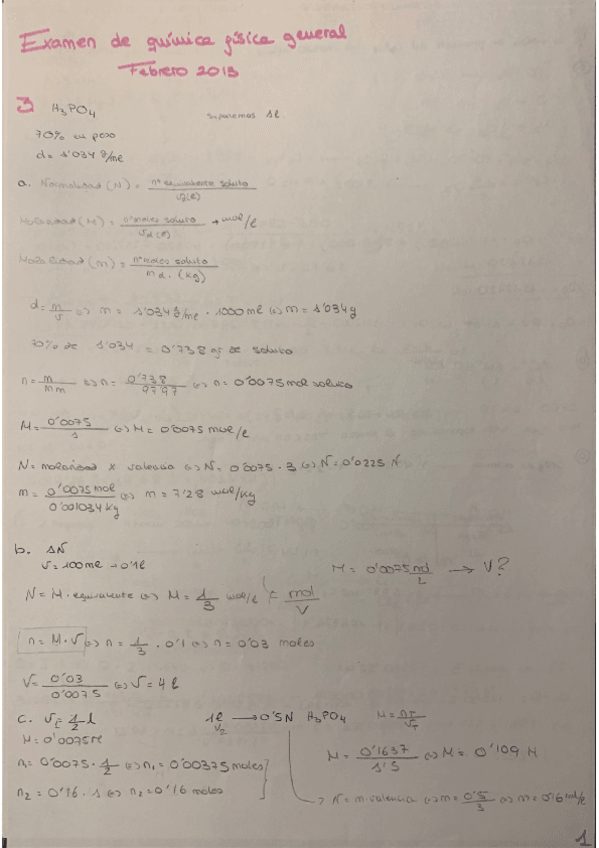 Examen de química física general
Febrero 2013
3 H₃PO₄ suponemos 1l.
70% en peso
d = 1'034 g/ml
a. Normalidad (N) = nº equivalente soluto / Vd(l)
Molaridad (M) = nº moles soluto / Vd(l) → mol/l
Molalidad (m) = nº moles soluto / md. (kg)
d = m/v ⇔ m = 1'034 g/ml · 1000 ml ⇔ m = 1'034g
70% de 1'034 = 0'738 g de soluto
n = m/mm ⇔ n = 0'738/97'97 ⇔ n = 0'0075 mol soluto
M = 0'0075/1 ⇔ M = 0'0075 mol/l
N = molaridad x valencia ⇔ N = 0'0075 · 3 ⇔ N = 0'0225 N
m = 0'0075 mol / 0'001034 kg ⇔ m = 7'28 mol/kg
b. 1N
V = 100 ml → 0'1l M = 0'0075 mol/L → V?
N = M · equivalente ⇔ M = 1/3 mol/l = mol/V
n = M · V ⇔ n = 1/3 · 0'1 ⇔ n = 0'03 moles
V = 0'03/0'0075 ⇔ V = 4 l
c. V₁ = 1/2 l 1l → 0'5N H₃PO₄ M = nT/VT
V₂
M = 0'0075M
n₁ = 0'0075 · 1/2 ⇔ n₁ = 0'00375 moles M = 0'1637/1'5 ⇔ M = 0'109 M
n₂ = 0'16 · 1 ⇔ n₂ = 0'16 moles → N = m · valencia ⇔ m = 0'5/3 ⇔ m = 0'16 mol/l
1